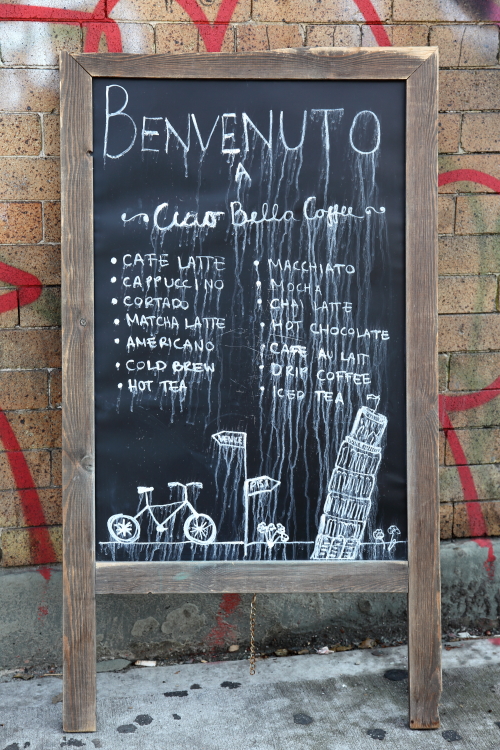 BENVENUTO
A
Ciao Bella Coffee
• CAFE LATTE
• CAPPUCCINO
• CORTADO
• MATCHA LATTE
• AMERICANO
• COLD BREW
• HOT TEA
• MACCHIATO
• MOCHA
• CHAI LATTE
• HOT CHOCOLATE
• CAFE AU LAIT
• DRIP COFFEE
• ICED TEA
VENICE
PISA